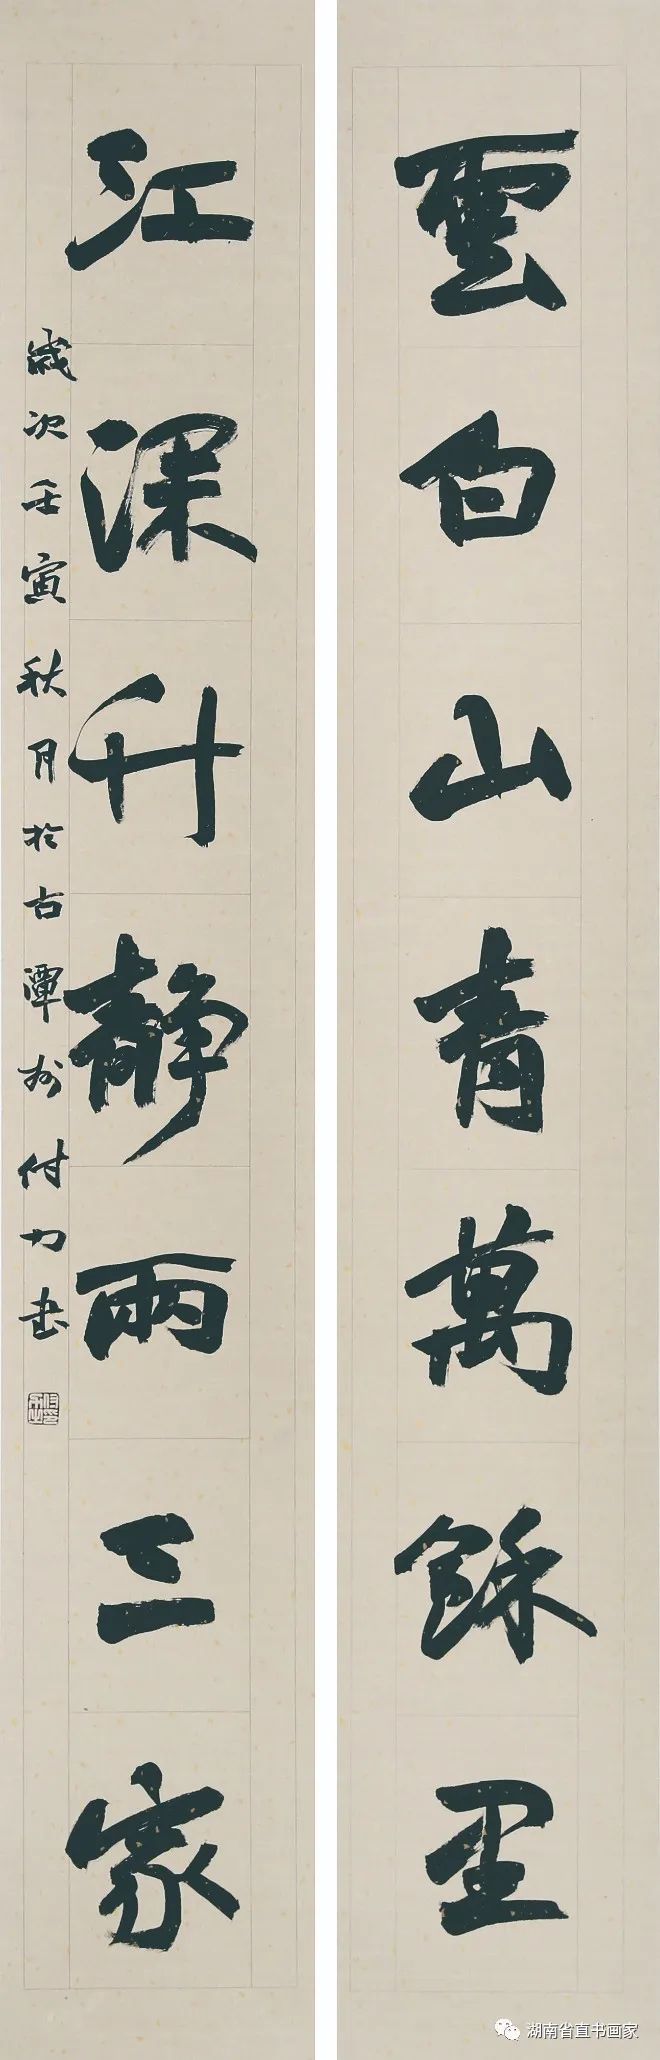 雲白山青萬餘里
江深竹靜兩三家
歲次壬寅秋月於古潭州付力書
湖南省直书画家